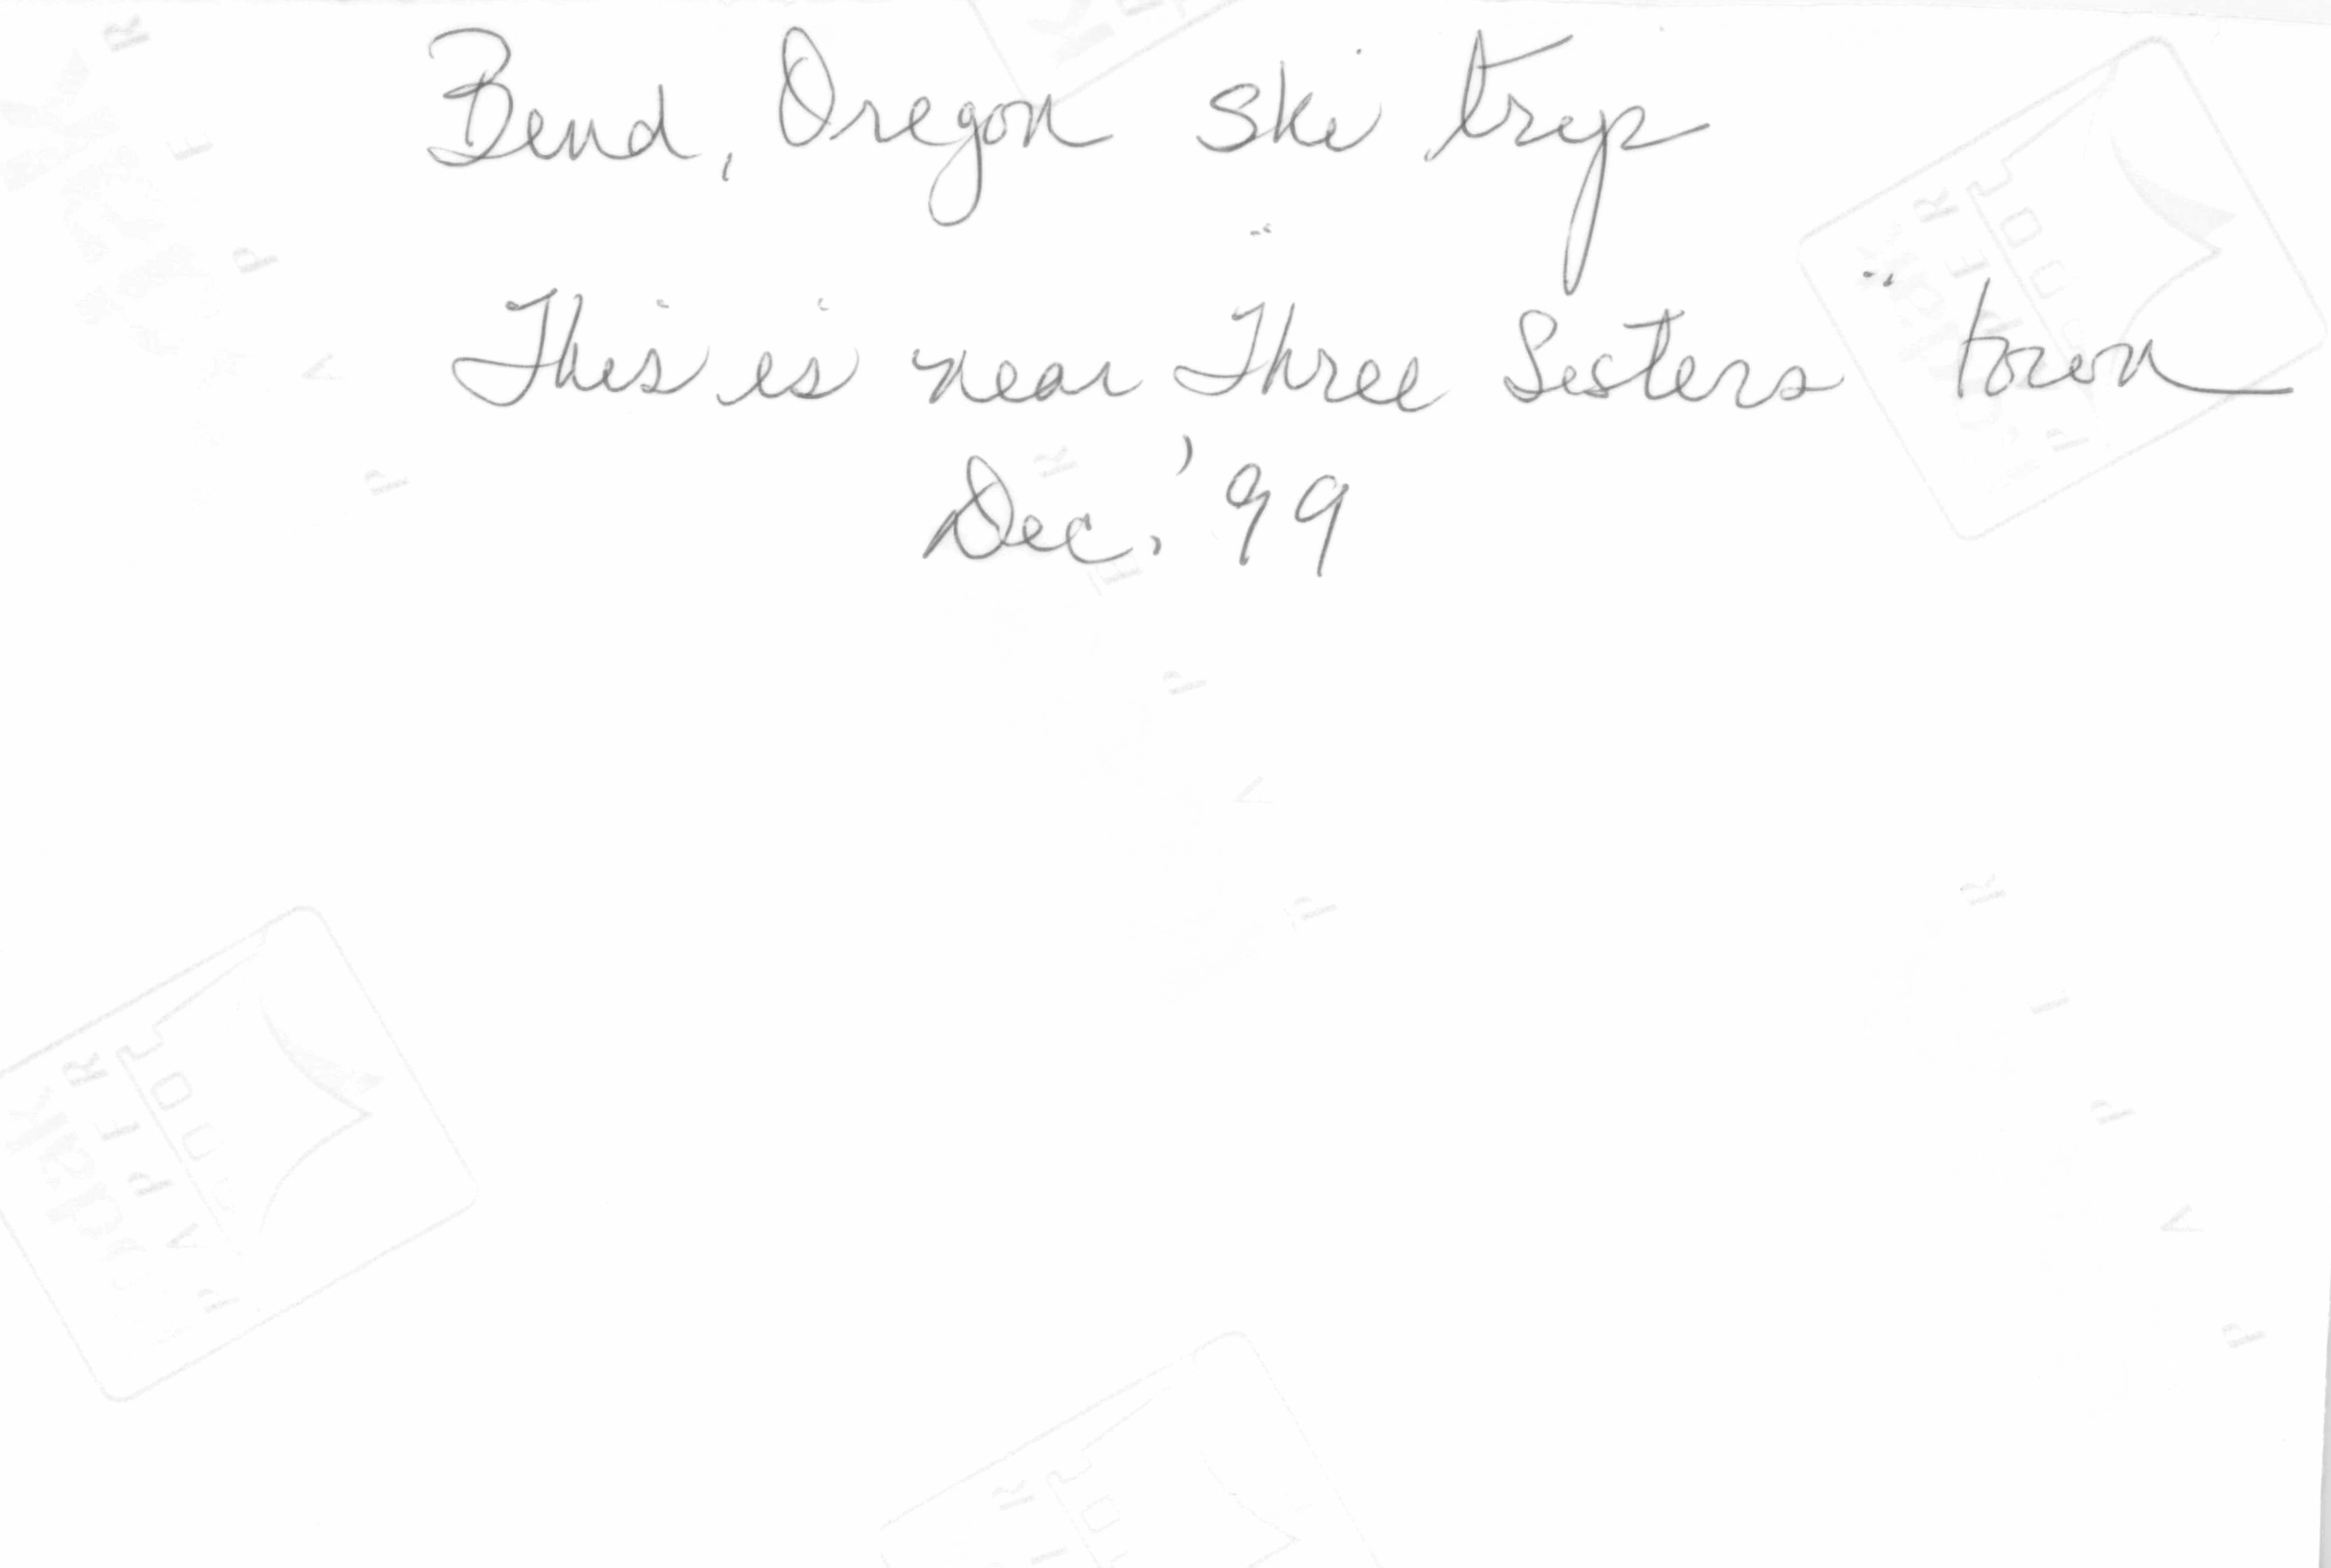 Bend, Oregon ski trip
This is near "Three Sisters" town
Dec. '99